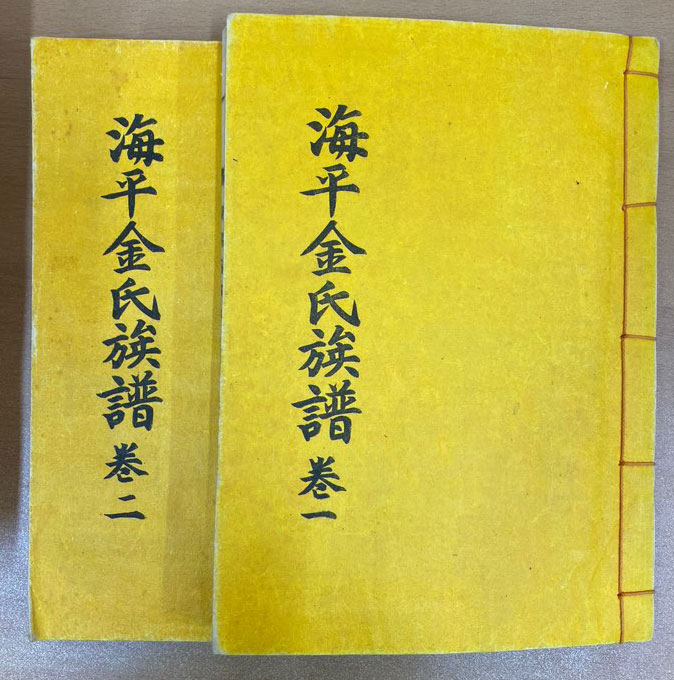 海平金氏族譜 卷一
海平金氏族譜 卷二